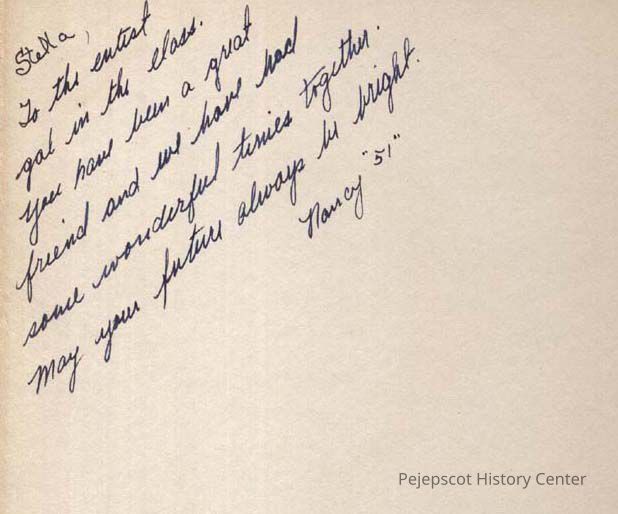 Stella,
To the cutest
gal in the class.
You have been a great
friend and we have had
some wonderful times together.
May your future always be bright.
Nancy "51"
Pejepscot History Center